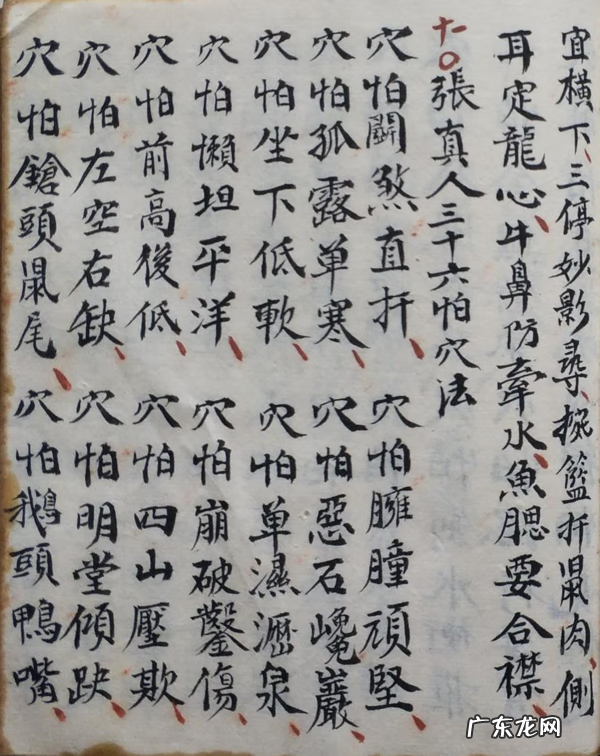 宜橫下、三停妙影尋、捥籃扦鼠肉、側
耳定龍心、牛鼻防牽水、魚腮要合襟、
十一〇張真人三十六怕穴法
穴怕鬭煞直扦、穴怕臃瞳頑堅、
穴怕孤露单寒、穴怕惡石巉巖、
穴怕坐下低軟、穴怕单濕瀝泉
穴怕懶坦平洋、穴怕崩破鑿傷、
穴怕前高後低、穴怕四山壓欺、
穴怕左空右缺、穴怕明堂傾跌、
穴怕鎗頭鼠尾、穴怕鵝頭鴨嘴、
广东龙网